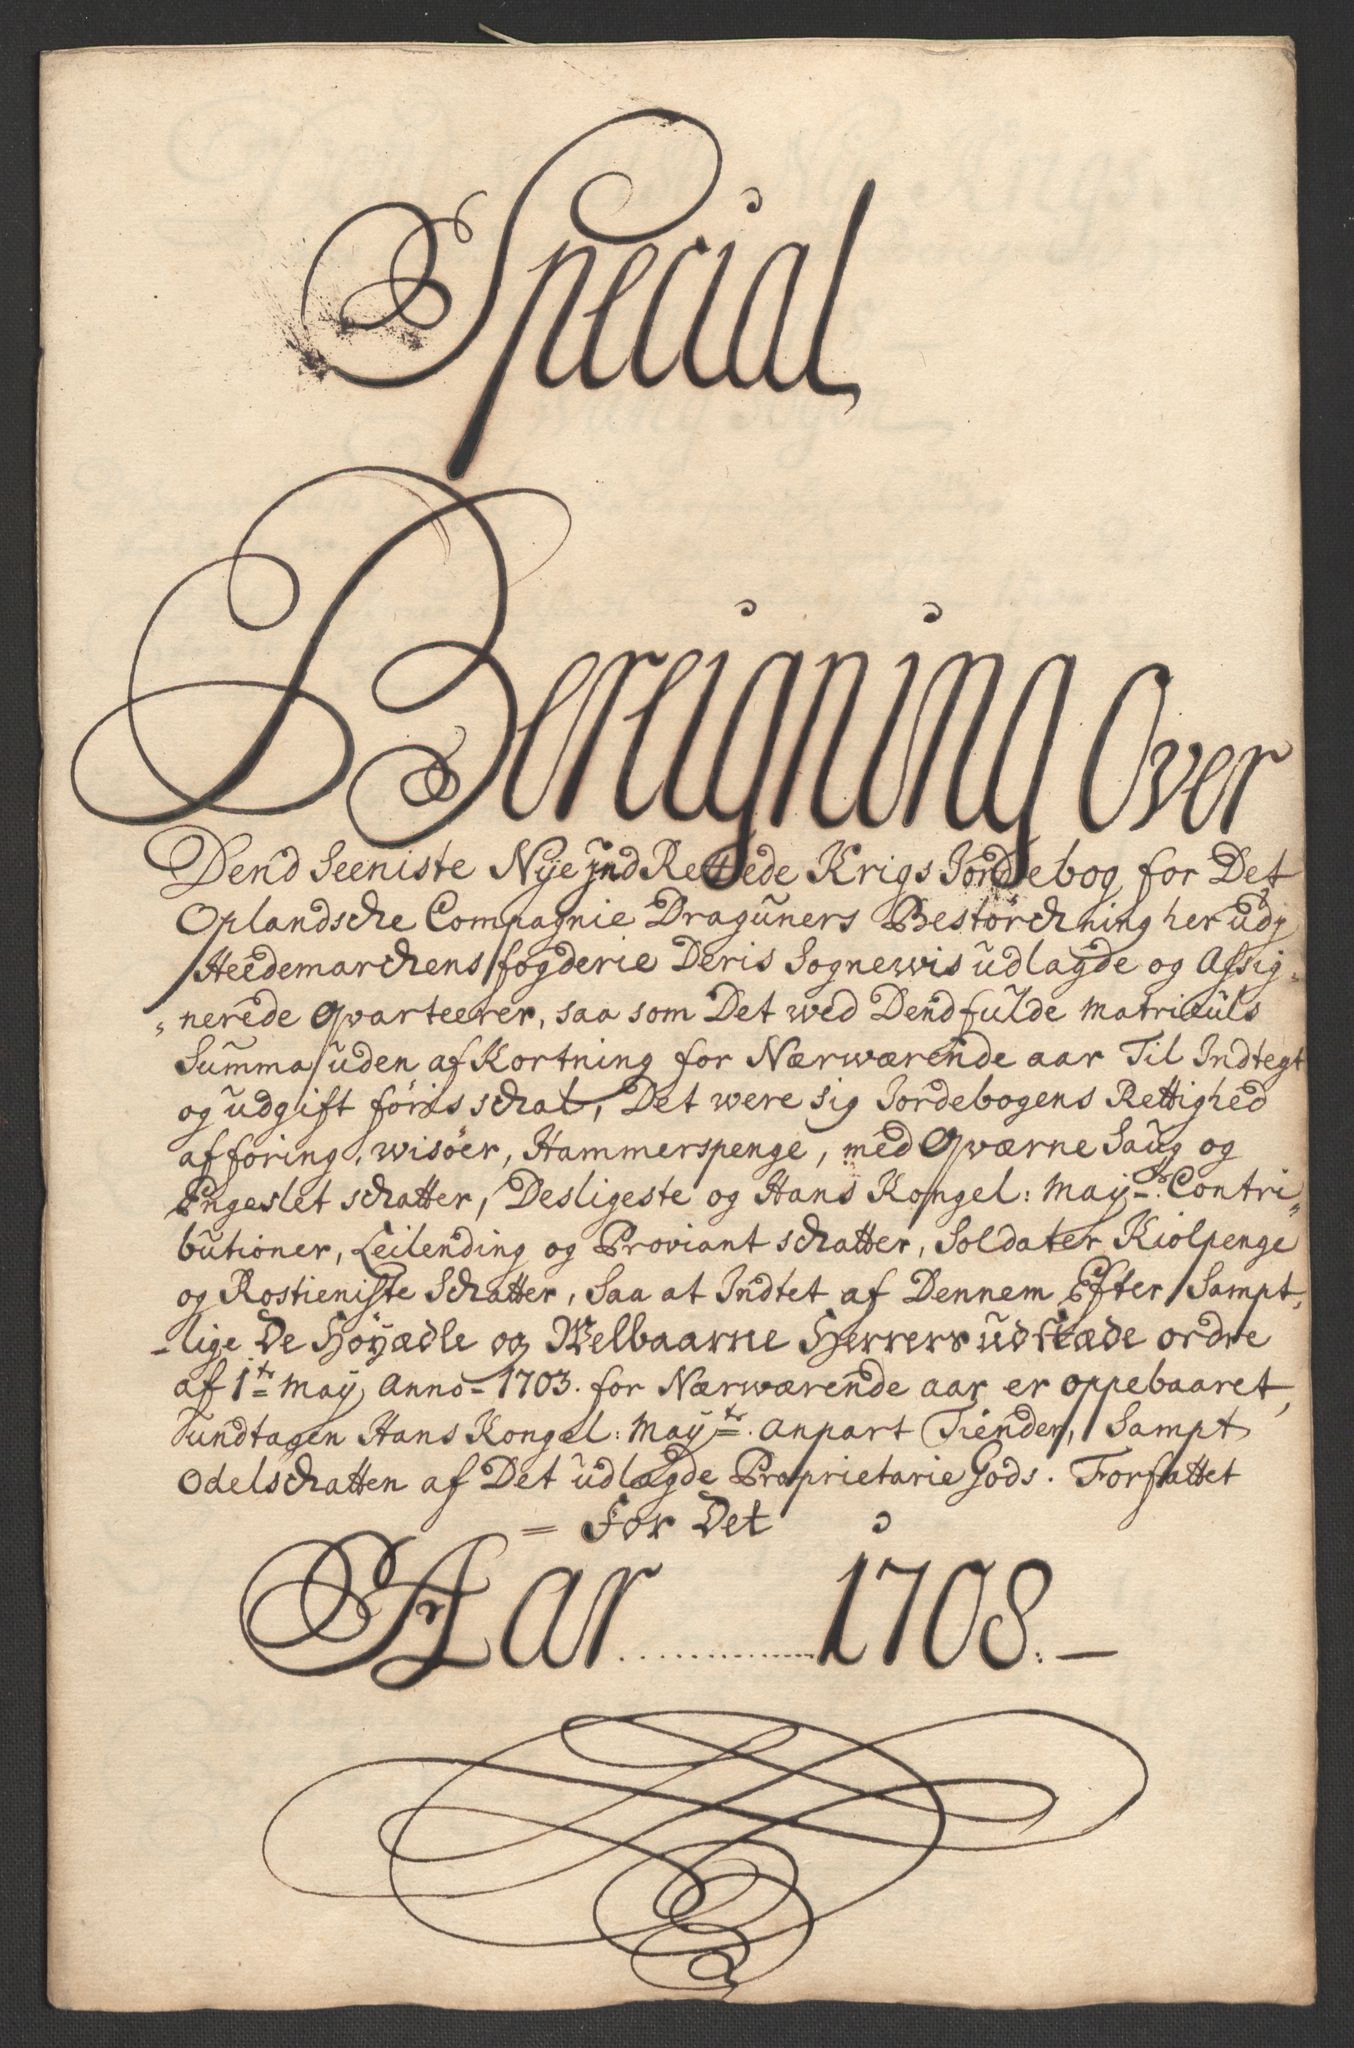 Special
Bereigning Over
Dend Seeniste Nÿe jnd Rettede Krigs Jordebog for Det
Oplandsche Compagnie Draguners Bestørchning her udj
Heedemarchens fogderie Deris Sognewis udlagde og Assig„
„nerede Qvarteerer, saa som Det wed Dend fulde Matriculs
Summa uden afKortning for Nærwærende aar Til Indtegt
og udgift føris schal, Det were sig Jordebogens Rettighed
afføring, wisøer, Hammerspenge, med Qværne Saug og
Engeslet schatter, Desligeste og Hans Kongel: Maÿ.ts Contri„
butioner, Leilending og Proviant schatter, Soldater Kiolpenge
og Rostieniste Schatter, Saa at Indtet af Dennem Efter Sampt„
-lige De Høÿædle og Welbaarne Herrers udstæde ordre
af 1.te Maÿ Anno-1703. for Nærwærende aar er oppebaaret,
undtagen Hans Kongel: Maÿ.ts anpart Tiender, Sampt
Odelschatten af Det udlagde Proprietarie Gods. Forfattet
= For Det
Aar ............ 1708.-